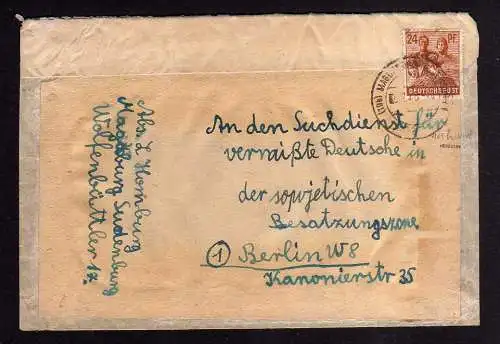 An den Suchdienst für
vermißte Deutsche in
der sowjetischen
Besatzungszone
1 Berlin W8
Kanonierstr 35
Abs. L Homburg
Magdeburg Sudenburg
Wolfenbüttler 17.
24 PF
DEUTSCHE POST